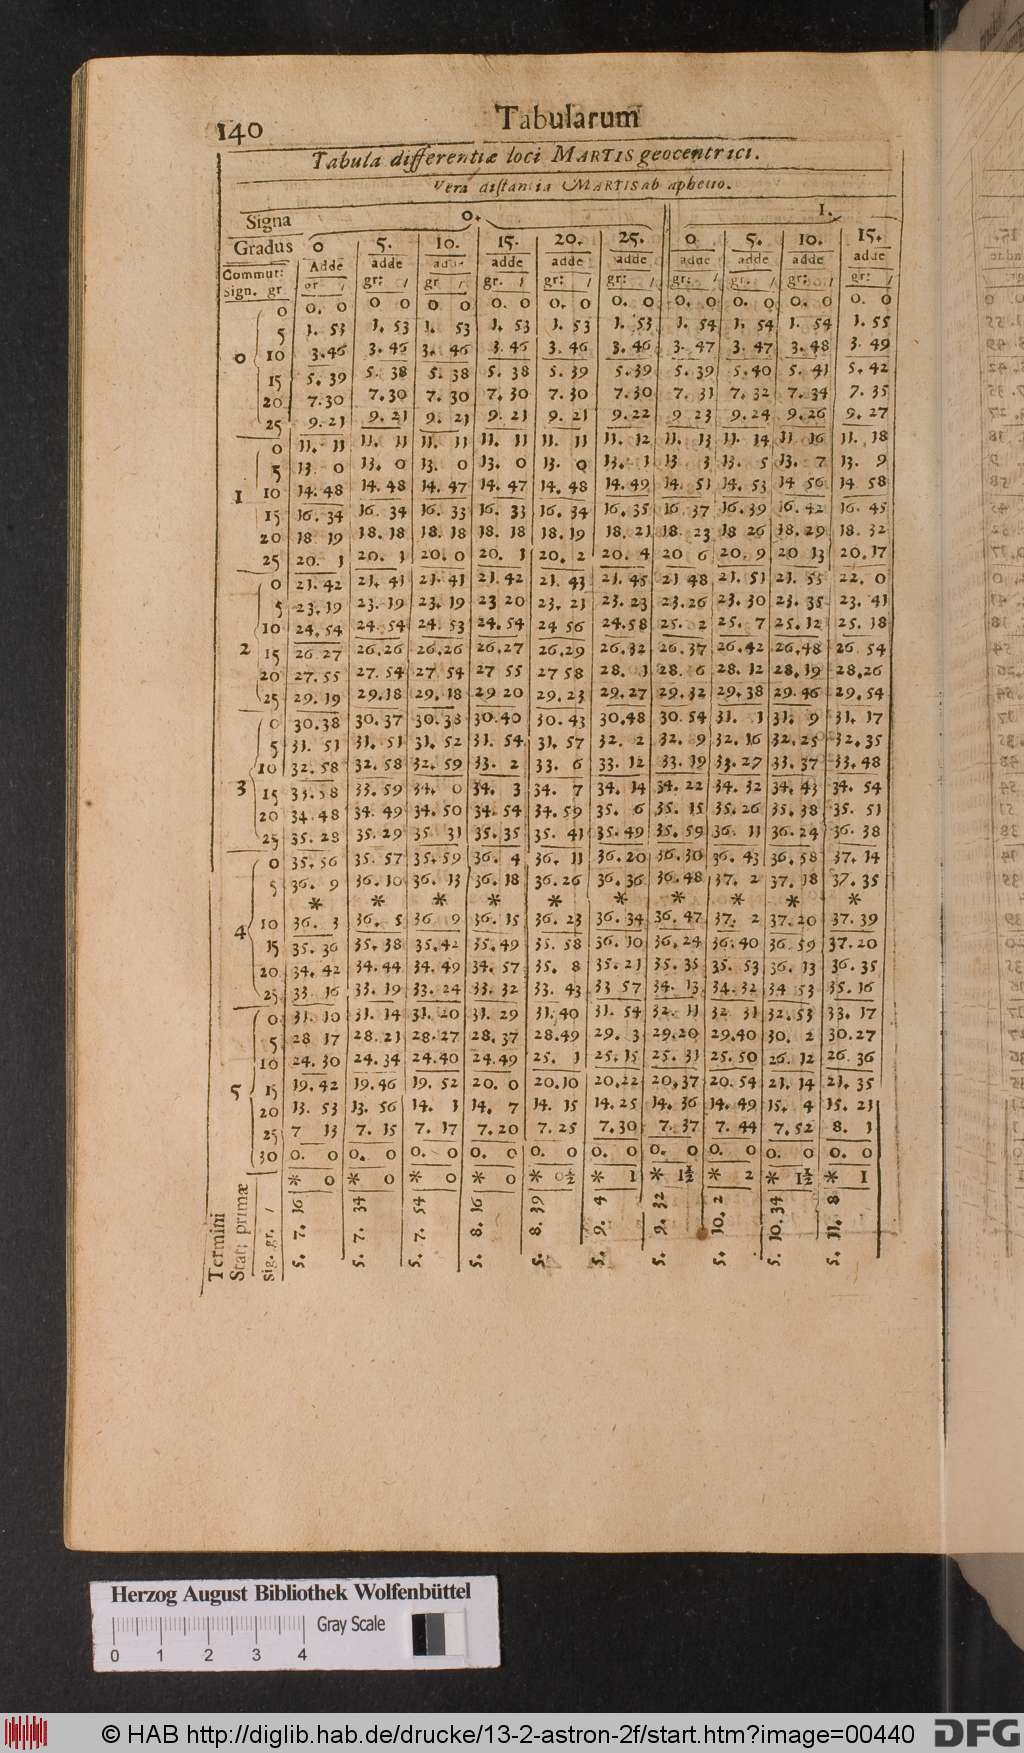 140 Tabularum
Tabula differentiæ loci MARTIS geocentrici.
Vera distantia MARTIS ab aphelio.
Signa 0. 1.
Gradus 0 5. 10. 15. 20. 25. 0 5. 10. 15.
Commut: Adde adde adde adde adde adde adde adde adde adde
Sign. gr. gr / gr: / gr / gr. / gr: / gr: / gr: / gr: / gr: / gr: /
0 0. 0 0 0 0 0 0. 0 0. 0 0. 0 0. 0 0. 0 0. 0 0. 0
5 1. 53 1. 53 1. 53 1. 53 1. 53 1. 53 1. 54 1. 54 1. 54 1. 55
0 10 3.46 3. 46 3. 46 3. 46 3. 46 3. 46 3. 47 3. 47 3. 48 3. 49
15 5. 39 5. 38 5. 38 5. 38 5. 39 5.39 5. 39 5.40 5. 41 5. 42
20 7.30 7.30 7. 30 7. 30 7. 30 7.30 7. 31 7. 32 7. 34 7. 35
25 9. 21 9. 21 9. 21 9. 21 9. 21 9.22 9 23 9.24 9.26 9. 27
0 11. 11 11. 11 11. 11 11. 11 11. 11 11. 12 11. 13 11. 14 11 16 11. 18
5 13. 0 13. 0 13. 0 13. 0 13. 0 13. 1 13 3 13. 5 13. 7 13. 9
1 10 14.48 14. 48 14. 47 14. 47 14. 48 14. 49 14. 51 14. 53 14 56 14 58
15 16. 34 16. 34 16. 33 16. 33 16. 34 16. 35 16. 37 16.39 16. 42 16. 45
20 18 19 18. 18 18. 18 18. 18 18. 19 18. 21 18. 23 18 26 18. 29 18. 32
25 20. 1 20. 1 20. 0 20. 1 20. 2 20. 4 20 6 20. 9 20 13 20.17
0 21. 42 21. 41 21. 41 21. 42 21. 43 21. 45 21 48 21. 51 21. 55 22. 0
5 23.19 23. 19 23. 19 23 20 23. 21 23. 23 23.26 23. 30 23. 35 23. 41
10 24. 54 24. 54 24. 53 24. 54 24 56 24.58 25. 2 25. 7 25. 12 25. 18
2 15 26 27 26.26 26.26 26.27 26.29 26.32 26. 37 26.42 26.48 26 54
20 27. 55 27. 54 27 54 27 55 27 58 28. 1 28. 6 28. 12 28. 19 28.26
25 29. 19 29.18 29. 18 29 20 29. 23 29. 27 29. 32 29. 38 29. 46 29. 54
0 30.38 30. 37 30. 38 30.40 30. 43 30.48 30. 54 31. 1 31. 9 31. 17
5 31. 51 31. 51 31. 52 31. 54 31. 57 32. 2 32. 9 32. 16 32.25 32. 35
10 32. 58 32. 58 32. 59 33. 2 33. 6 33. 12 33. 19 33.27 33. 37 33. 48
3 15 33.58 33. 59 34. 0 34. 3 34. 7 34. 14 34. 22 34. 32 34. 43 34. 54
20 34.48 34. 49 34. 50 34. 54 34. 59 35. 6 35. 15 35.26 35. 38 35. 51
25 35. 28 35.29 35 31 35. 35 35. 41 35.49 35. 59 36. 11 36.24 36. 38
0 35.56 35. 57 35. 59 36. 4 36. 11 36.20 36.30 36. 43 36. 58 37. 14
5 36. 9 36.10 36. 13 36. 18 36.26 36. 36 36.48 37. 2 37. 18 37. 35
* * * * * * * * * *
10 36. 3 36. 5 36 9 36. 15 36. 23 36. 34 36. 47 37. 2 37.20 37. 39
4 15 35. 36 35. 38 35.42 35. 49 35. 58 36. 10 36.24 36.40 36 59 37.20
20 34. 42 34.44 34. 49 34. 57 35. 8 35. 21 35. 35 35. 53 36. 13 36. 35
25 33 16 33. 19 33. 24 33. 32 33. 43 33 57 34. 13 34.32 34 53 35. 16
0 31. 10 31. 14 31. 20 31. 29 31. 40 31. 54 32. 11 32 31 32. 53 33. 17
5 28 17 28.21 28.27 28. 37 28.49 29. 3 29.20 29.40 30. 2 30.27
10 24. 30 24. 34 24.40 24.49 25. 1 25. 15 25. 31 25.50 26. 12 26. 36
5 15 19. 42 19.46 19. 52 20. 0 20.10 20.22 20.37 20. 54 21. 14 21. 35
20 13. 53 13. 56 14. 1 14. 7 14. 15 14.25 14. 36 14. 49 15. 4 15. 21
25 7 13 7. 15 7. 17 7. 20 7. 25 7.30 7. 37 7. 44 7. 52 8. 1
30 0. 0 0. 0 0. 0 0. 0 0. 0 0. 0 0. 0 0. 0 0. 0 0. 0
* 0 * 0 * 0 * 0 * 0½ * 1 * 1½ * 2 * 1½ * 1
Termini
Stat: primæ
Sig. gr. / 5. 7. 16 5. 7. 34 5. 7. 54 5. 8. 16 5. 8. 39 5. 9. 4 5. 9. 32 5. 10. 2 5. 10. 34 5. 11. 8
Herzog August Bibliothek Wolfenbüttel
Gray Scale
0 1 2 3 4
© HAB http://diglib.hab.de/drucke/13-2-astron-2f/start.htm?image=00440 DFG